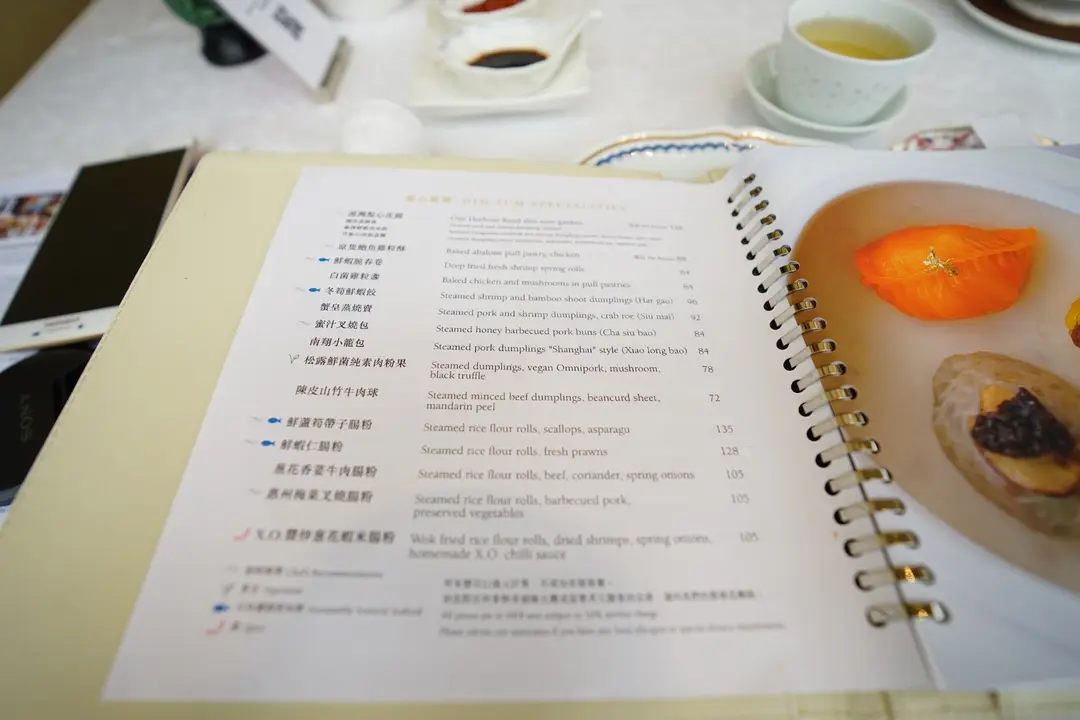 點心精選 DIM SUM SPECIALITIES
港灣點心花園 One Harbour Road dim sum garden,
Baked abalone puff pastry, chicken
鮮蝦脆春卷 Deep fried fresh shrimp spring rolls 84
白菌雞粒盞 Baked chicken and mushrooms in puff pastries 84
冬筍鮮蝦餃 Steamed shrimp and bamboo shoot dumplings (Har gao) 96
蟹皇蒸燒賣 Steamed pork and shrimp dumplings, crab roe (Siu mai) 92
蜜汁叉燒包 Steamed honey barbecued pork buns (Cha siu bao) 84
南翔小籠包 Steamed pork dumplings "Shanghai" style (Xiao long bao) 84
松露鮮菌純素肉粉果 Steamed dumplings, vegan Omnipork, mushroom, 78
black truffle
陳皮山竹牛肉球 Steamed minced beef dumplings, beancurd sheet, 72
mandarin peel
鮮蘆筍帶子腸粉 Steamed rice flour rolls, scallops, asparagu 135
鮮蝦仁腸粉 Steamed rice flour rolls, fresh prawns 128
蔥花香荽牛肉腸粉 Steamed rice flour rolls, beef, coriander, spring onions 105
惠州梅菜叉燒腸粉 Steamed rice flour rolls, barbecued pork, 105
preserved vegetables
X.O. 醬炒蔥花蝦米腸粉 Wok fried rice flour rolls, dried shrimps, spring onions, 105
homemade X.O. chilli sauce
Chef's Recommendation
素食 Vegetarian
Sustainably Sourced Seafood
辣 Spicy
All prices are in HK$ and subject to 10% service charge
Please advise our associates if you have any food allergies or special dietary requirements
SONY